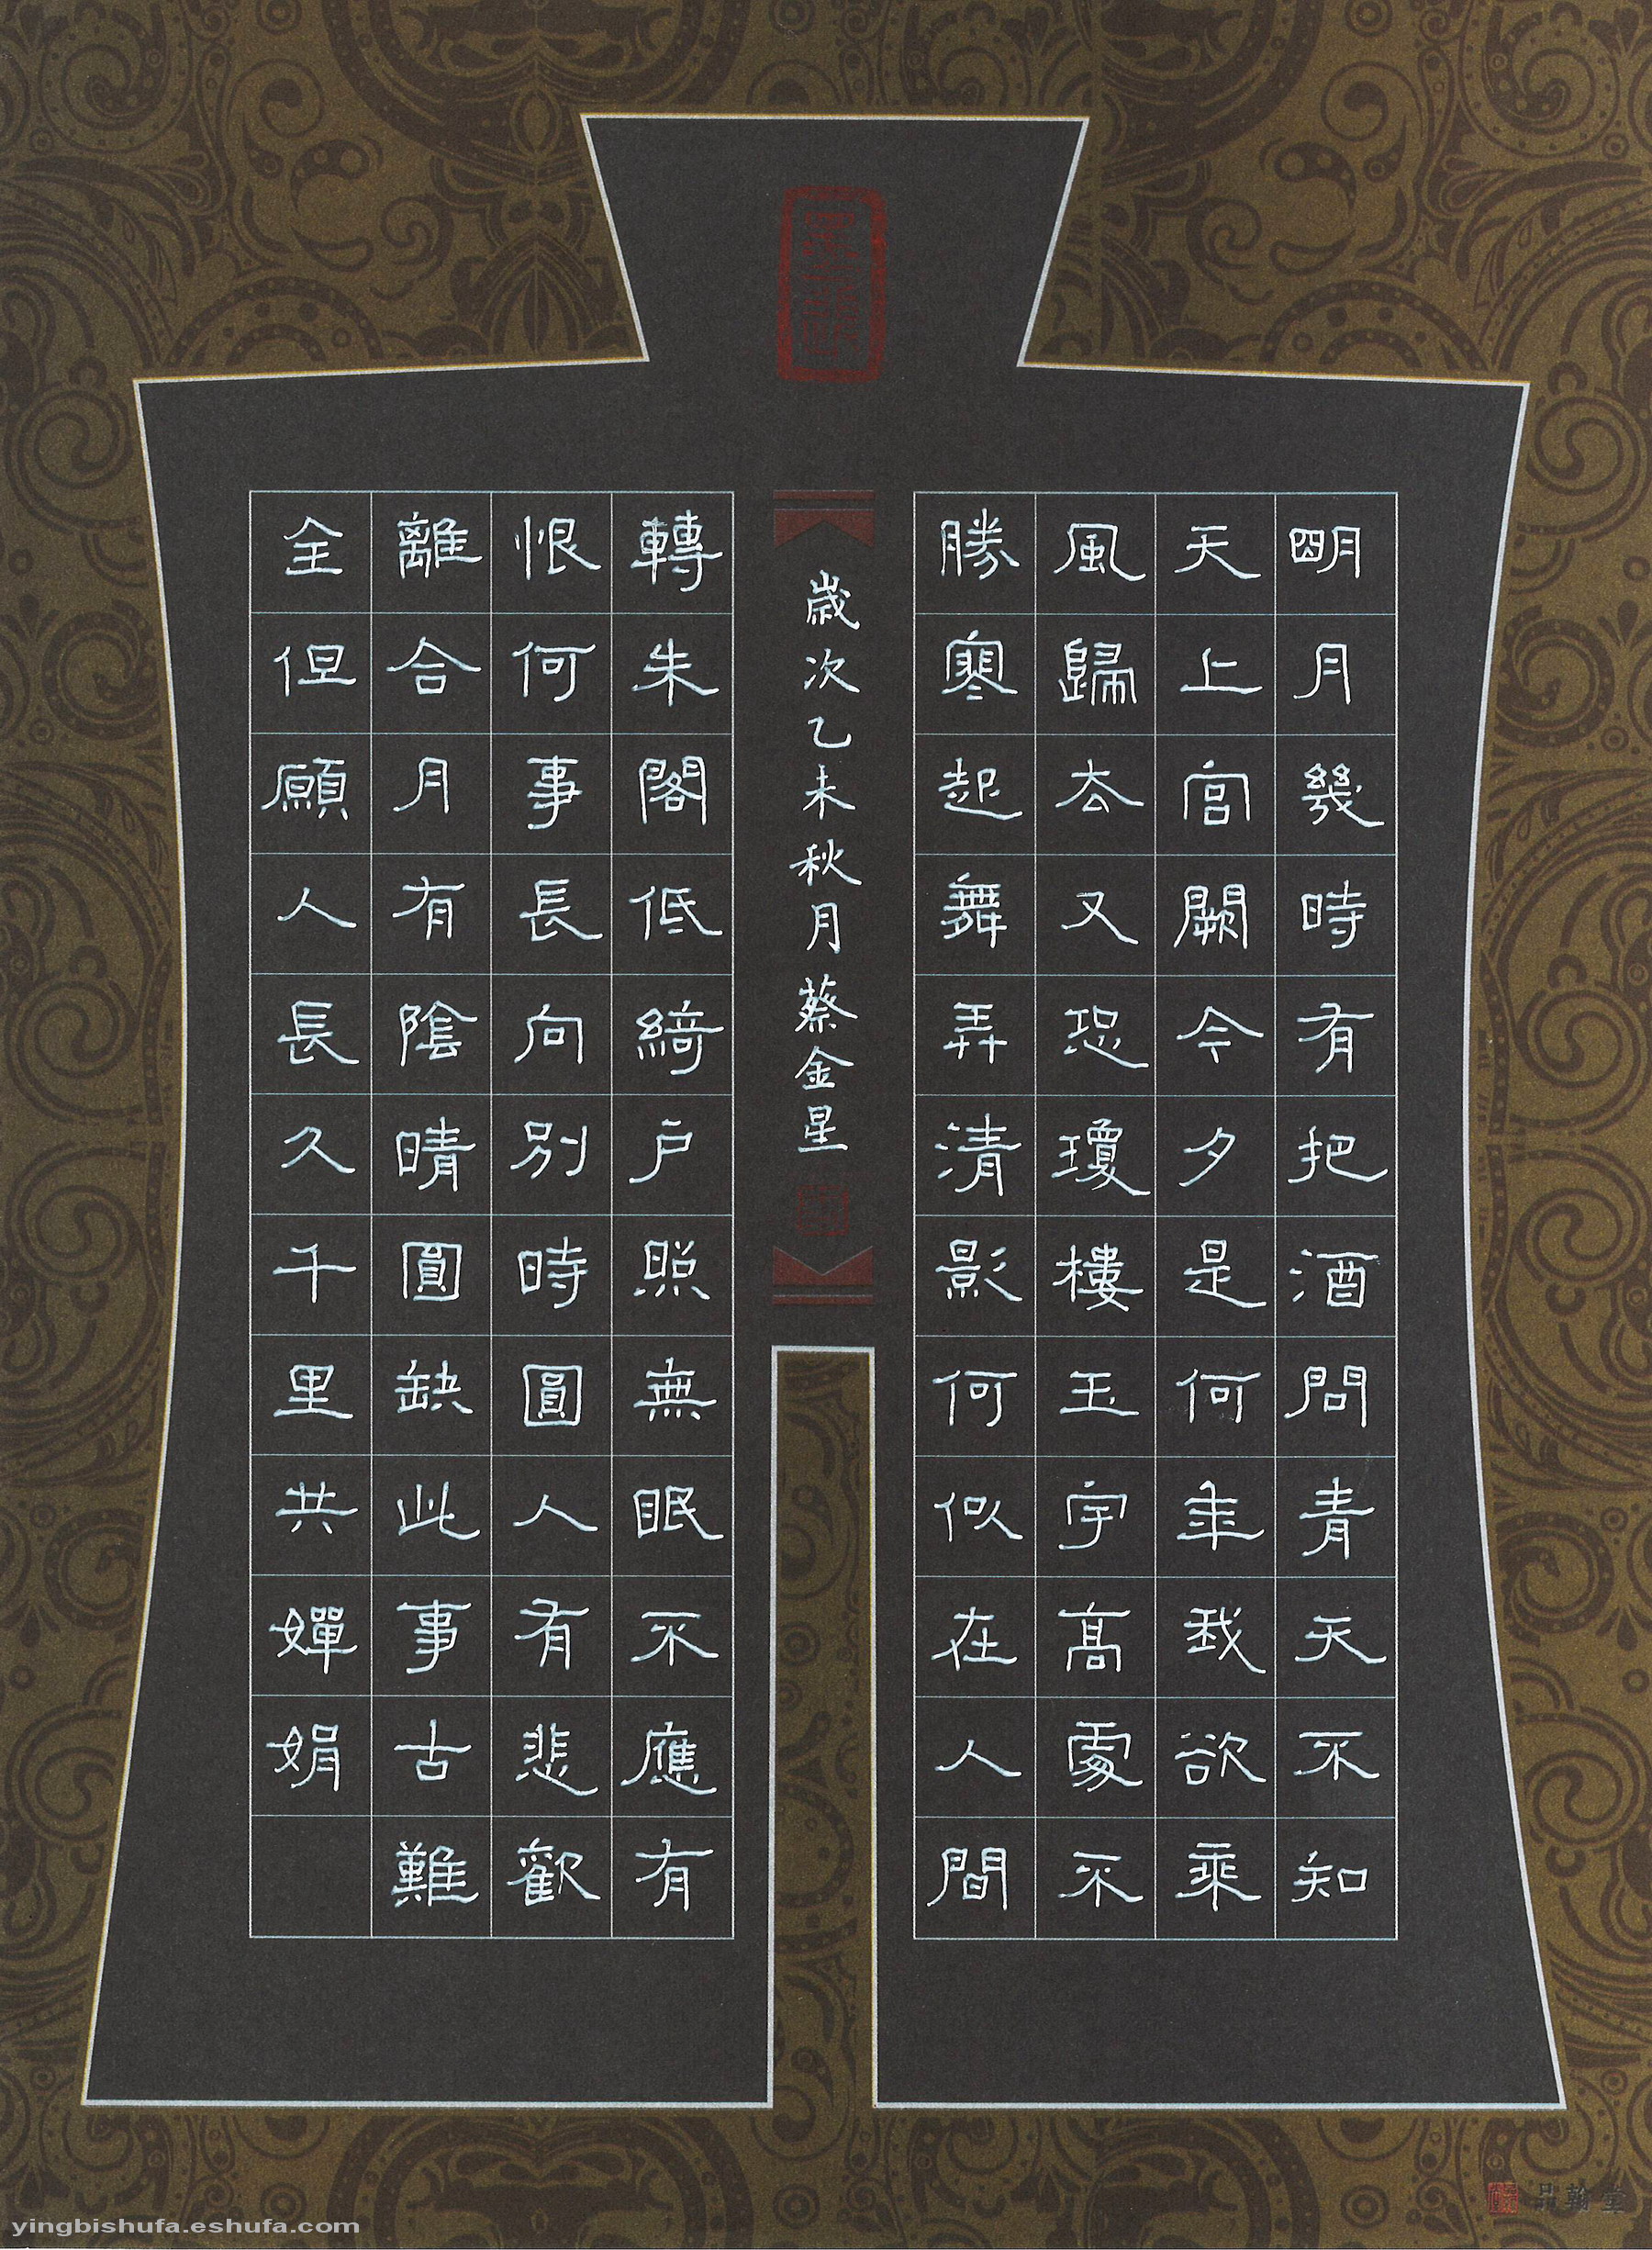 明月幾時有把酒問青天不知
天上宮闕今夕是何年我欲乘
風歸去又恐瓊樓玉宇高處不
勝寒起舞弄清影何似在人間
歲次乙未秋月蔡金星
轉朱閣低綺户照無眠不應有
恨何事長向別時圓人有悲歡
離合月有陰晴圓缺此事古難
全但願人長久千里共嬋娟
品翰堂
yingbishufa.eshufa.com